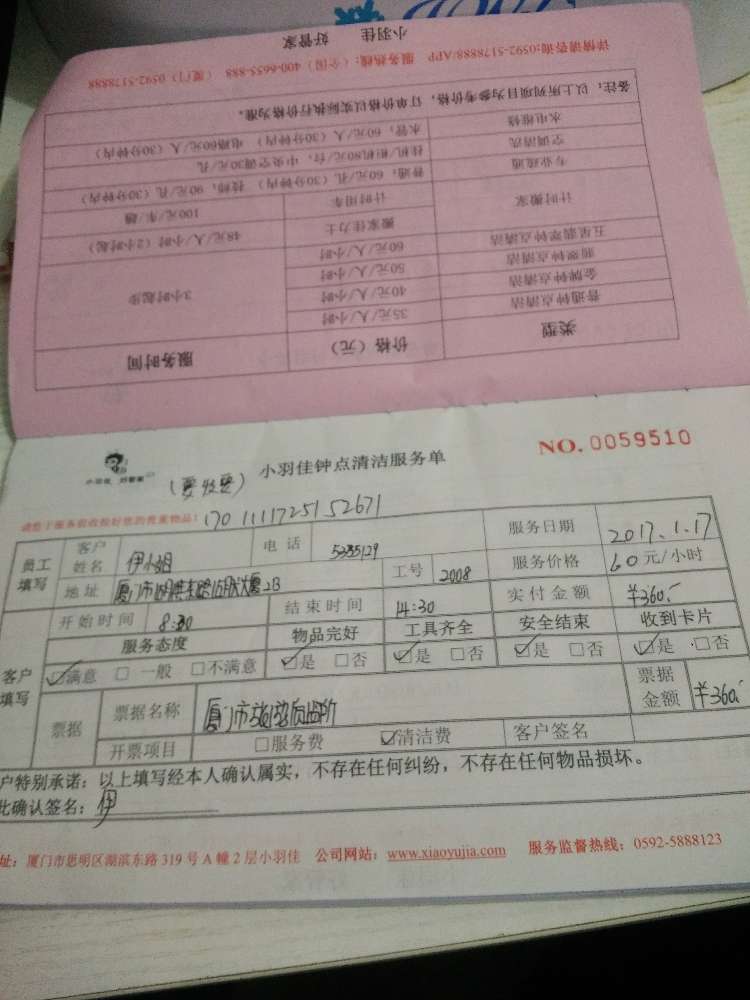 小羽佳 好管家
详情请咨询:0592-5178888/APP 服务热线:(全国) 400-6655-888 (厦门) 0592-5178888
备注:以上所列项目为参考价格,订单价格以实际执行价格为准。
水电维修 水管,60元/人(30分钟内) 电路60元/人(30分钟内)
空调清洗 挂机/柜机80元/台,中央空调30元/孔
专业疏通 普通,60元/孔(30分钟内) 技师,90元/孔(30分钟内)
计时搬家 计时用车 100元/车/趟
搬家佳力士 48元/人/小时(2小时起)
五星翡翠钟点清洁 60元/人/小时
翡翠钟点清洁 50元/人/小时
金牌钟点清洁 40元/人/小时 3小时起步
普通钟点清洁 35元/人/小时
类型 价格(元) 服务时间
小羽佳 好管家
小羽佳钟点清洁服务单
NO. 0059510
(要收费)
请您于服务前收拾好您的贵重物品!
170111172515 2671
员工填写 客户姓名 伊小姐 电话 5335129 服务日期 2017.1.17
地址 厦门市 2B 工号 2008 服务价格 60元/小时
客户填写 开始时间 8:30 结束时间 14:30 实付金额 ¥360.-
服务态度 物品完好 工具齐全 安全结束 收到卡片
☑满意 □一般 □不满意 ☑是 □否 ☑是 □否 ☑是 □否 ☑是 □否
票据 票据名称 厦门市 票据金额 ¥360.-
开票项目 □服务费 ☑清洁费 客户签名
户特别承诺:以上填写经本人确认属实,不存在任何纠纷,不存在任何物品损坏。
此确认签名:伊
址:厦门市思明区湖滨东路319号A幢2层小羽佳 公司网站:www.xiaoyujia.com 服务监督热线:0592-5888123